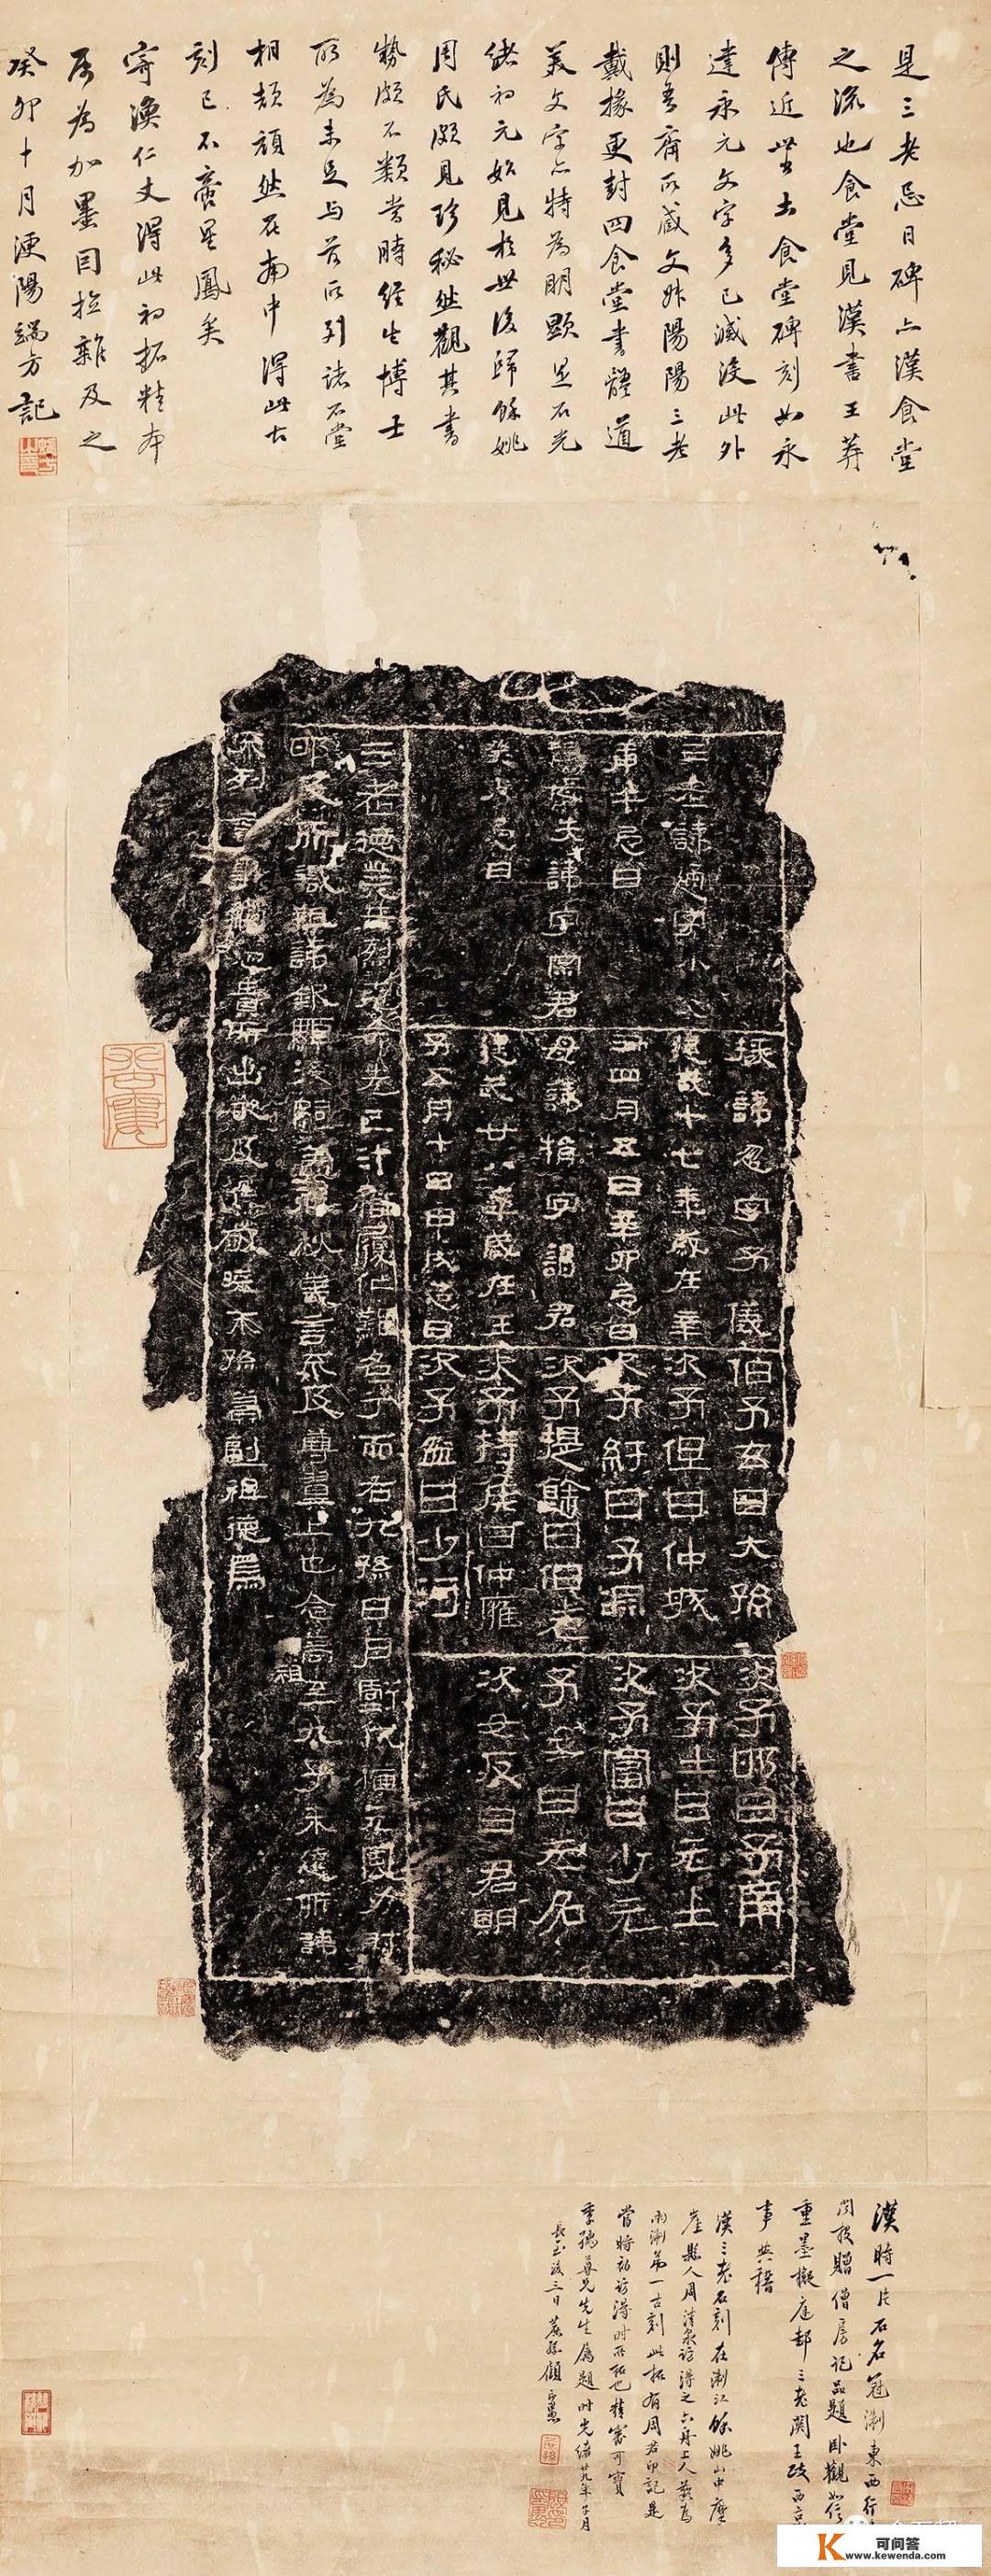 是三老忌日碑亦漢食堂
之流也食堂見漢書王莽
傳近世出土食堂碑刻如永
達永元文字多已滅沒此外
則吾齋所藏文叔陽陽三老
戴掾更封四食堂書體道
美文字亦特為明顯是石光
緒初元始見於世後歸餘姚
周氏頗見珍秘然觀其書
勢頗不類當時經生博士
所為未足与前所列諸石堂
相頡頏然在南中得此古
刻已不啻星鳳矣
寄漁仁丈得此初拓精本
屬為加墨因拉雜及之
癸卯十月浭陽端方記
三老諱通字小父
庚午忌日
祖母失諱字宗君
癸未忌日
掾諱忽字子儀
建武十七年歲在辛
丑四月五日辛卯忌日
母諱捐字謁君
建武廿八年歲在壬
子五月十日甲戌忌日
伯子玄曰大孫
次子但曰仲城
次子紆曰子淵
次子提餘曰伯老
次子持侯曰仲雍
次子盆曰少河
次子邯曰子南
次子士曰元士
次子富曰少元
子女曰无名
次女反曰君明
三老德業赫烈克命先己汁稽履仁難名兮而右九孫日月虧代猶元風力射
邯及所識祖諱欽顯後嗣蓋春秋義言不及尊翼上也念高祖至九子未遠所諱
不列言事觸忌貴所出嚴及焦敬曉末孫冀副祖德焉
漢時一片石名冠浙東西行
間投贈僧房記品題臥觀如
重墨擬庭邨三老闕王政西京
事典稽
漢三老石刻在浙江餘姚山中摩
崖縣人周清泉訪得之六舟上人為
兩浙第一古刻此拓有周君印記是
當時初訪得時所拓也精審可寶
季孺尊兄先生屬題時光緒廿九年子月
長至後三日 顧
可问答
www.kewenda.com